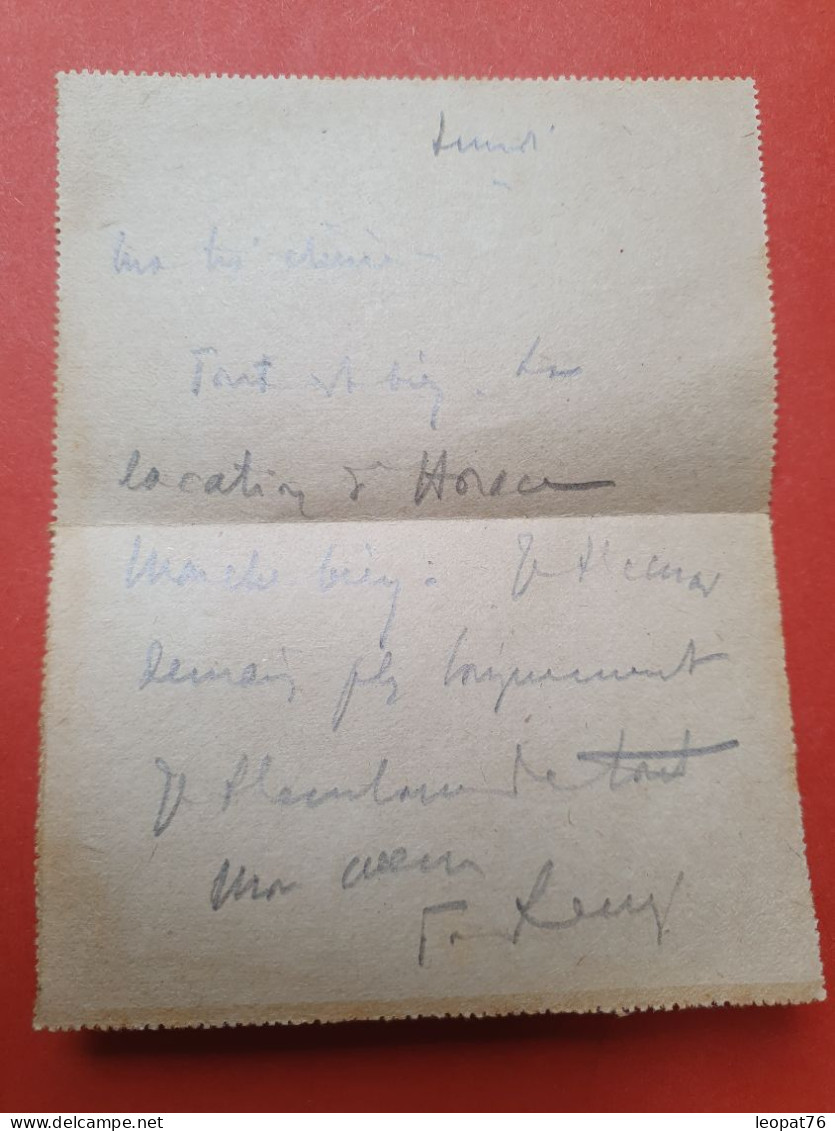 Lundi
Ma très chérie -
Tout est bien. La
location d'Horace
marche bien. Je t'écrirai
demain plus longuement
Je t'embrasse de tout
mon coeur
Ton
leopat76
www.delcampe.net